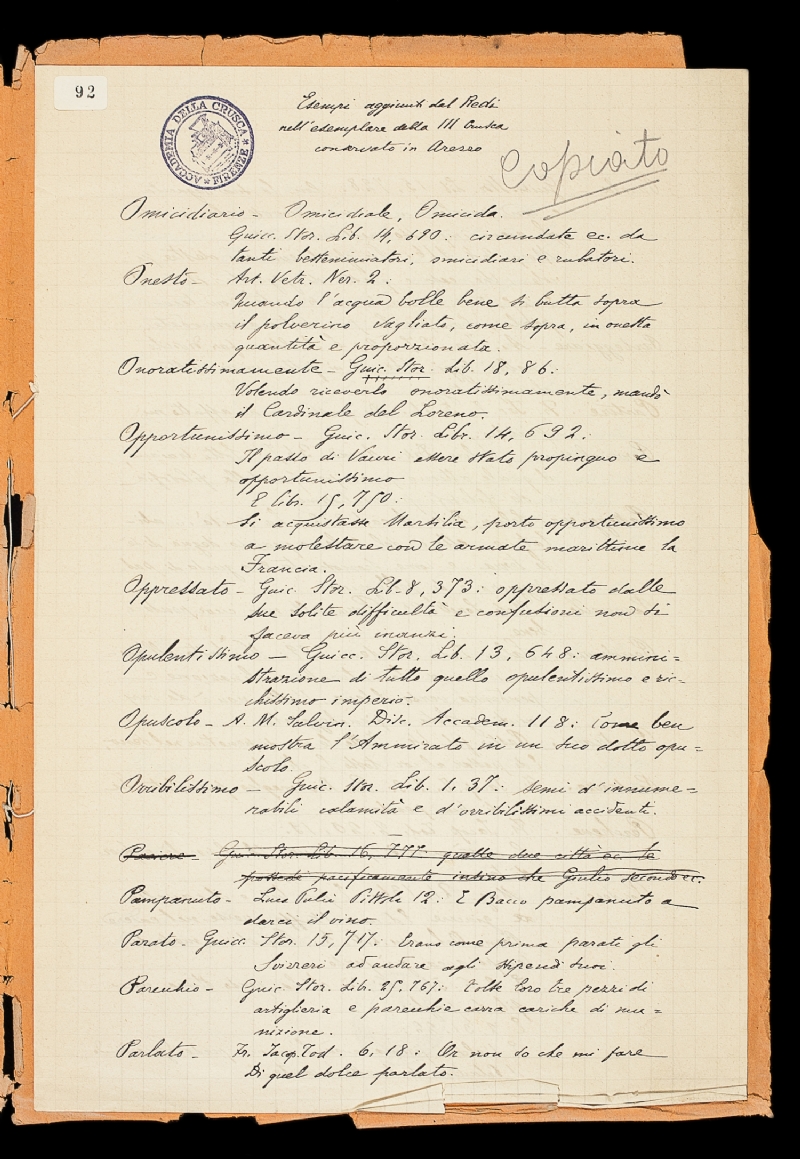 92
ACCADEMIA DELLA CRUSCA
FIRENZE
Esempi aggiunti dal Redi
nell'esemplare della III Crusca
conservato in Arezzo
Copiato
Omicidiario - Omicidiale, Omicida.
Guicc. Stor. Lib. 14, 690: circundate ec. da
tanti bestemmiatori, omicidiari e rubatori.
Onesto - Art. Vetr. Ner. 2:
Quando l'acqua bolle bene si butta sopra
il polverino vagliato, come sopra, in onesta
quantità e proporzionata.
Onoratissimamente - Guic. Stor. Lib. 18, 86:
Volendo riceverlo onoratissimamente, mandò
il Cardinale del Loreno.
Opportunissimo - Guic. Stor. Libr. 14, 692:
Il passo di Vauri essere stato propinquo e
opportunissimo
E libr. 15, 750:
Si acquistasse Marsilia, porto opportunissimo
a molestare con le armate marittime la
Francia.
Oppressato - Guic. Stor. Lib. 8, 373: oppressato dalle
sue solite difficultà e confusioni non si
faceva più innanzi.
Opulentissimo - Guicc. Stor. Lib. 13, 648: ammini=
strazione di tutto quello opulentissimo e ric-
chissimo imperio.
Opuscolo - A. M. Salvin. Disc. Accadem. 118: Come ben
mostra l'Ammirato in un suo dotto opu=
scolo.
Orribilissimo - Guic. Stor. Lib. 1, 37: semi d'innume-
rabili calamità e d'orribilissimi accidenti.
Guic. Stor. Lib. 16, 777: quelle due città ec. le
possedè pacificamente insino che Giulio secondo ec.
Pampanuto - Luca Pulci Pistole 12: E Bacco pampanuto a
darci il vino.
Parato - Guicc. Stor. 15, 717: Erano come prima parati gli
Svizzeri ad andare agli stipendi suoi.
Parecchio - Guic. Stor. Lib. 25. 767: Tolse loro tre pezzi di
artiglieria e parecchie carra cariche di mu=
nizione.
Parlato - Fr. Jacop. Tod. 6, 18: Or non so che mi fare
Di quel dolce parlato.